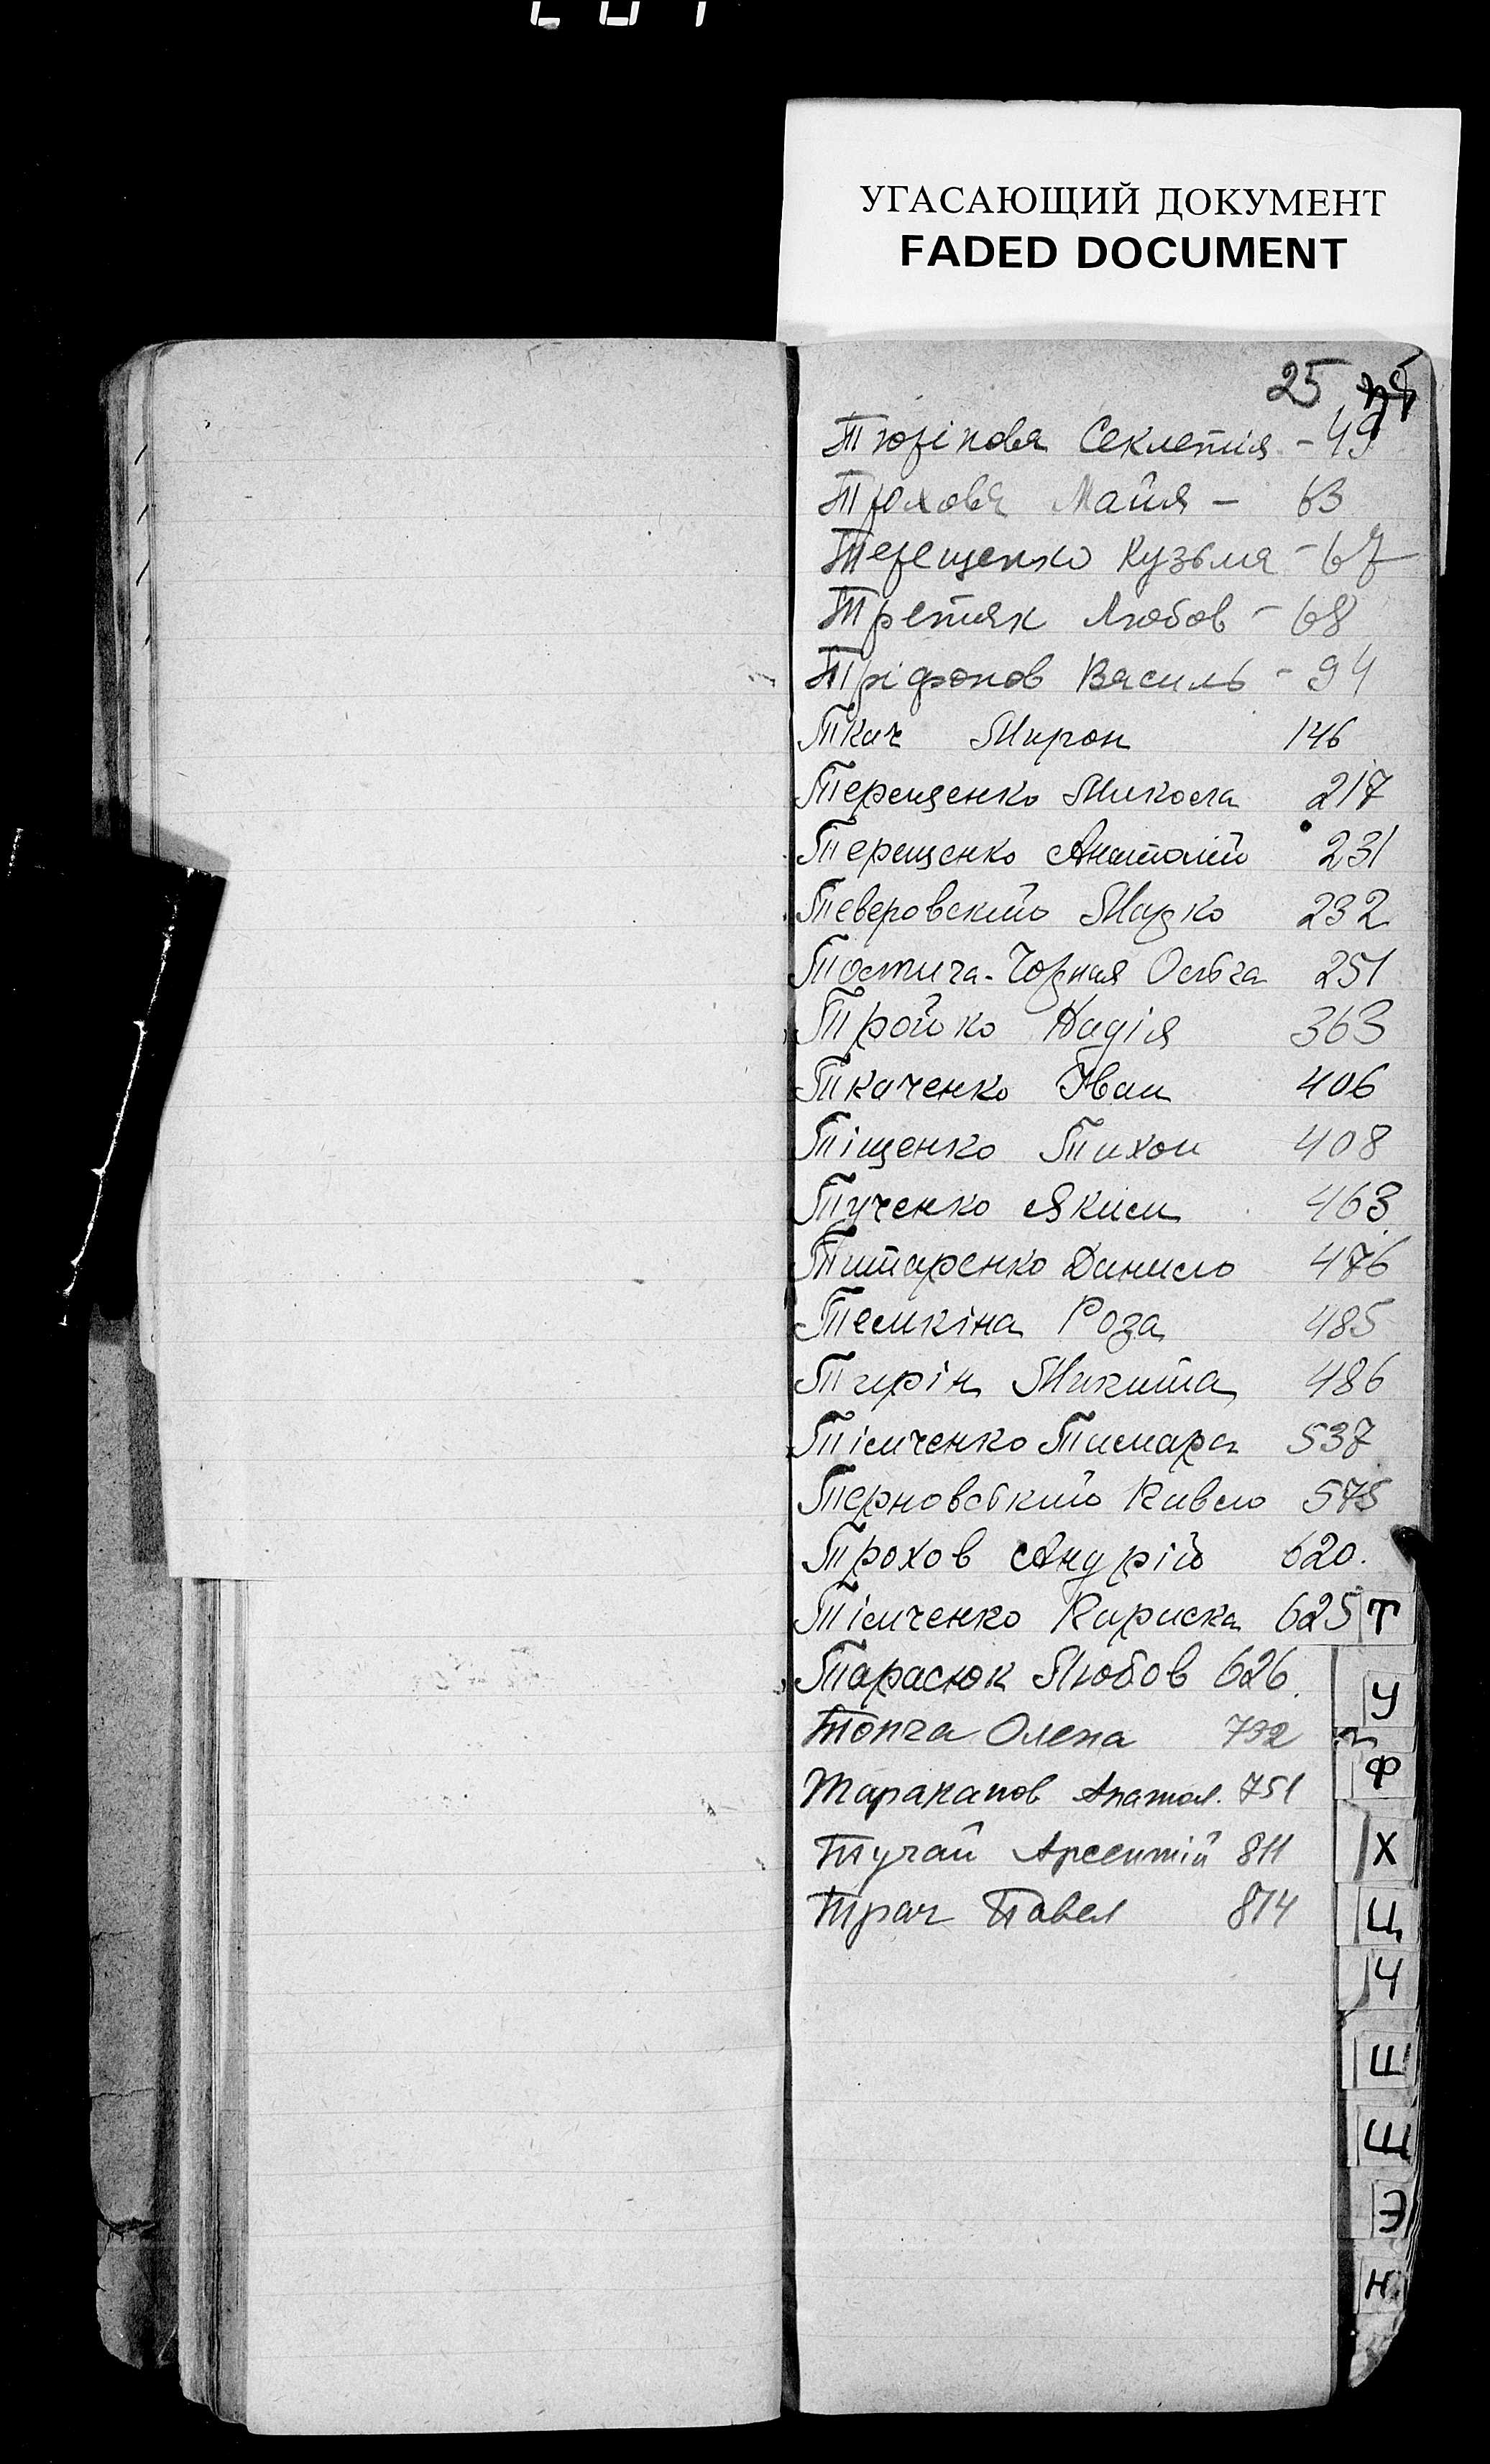 УГАСАЮЩИЙ ДОКУМЕНТ
FADED DOCUMENT
25
Тюрікова Секлетія - 49
Трохова Майя - 63
Терещенко Кузьма - 67
Третяк Любов - 68
Тріфонов Василь - 94
Ткач Мирон 146
Терещенко Микола 217
Терещенко Анатолій 231
Теверовський Марко 232
Толмича-Чорная Ольга 251
Тройко Надія 363
Ткаченко Іван 406
Тіщенко Тихон 408
Тученко Яким 463
Титаренко Данило 476
Темкіна Роза 485
Тирін Микита 486
Тімченко Тамара 537
Терновський Кавло 575
Трохов Андрій 620.
Тімченко Лариска 625
Тарасюк Любов 626.
Топча Олена 732
Тараканов Анатол. 751
Тучай Арсентій 811
Трач Павел 814
Т
У
Ф
Х
Ц
Ч
Ш
Щ
Э
Н